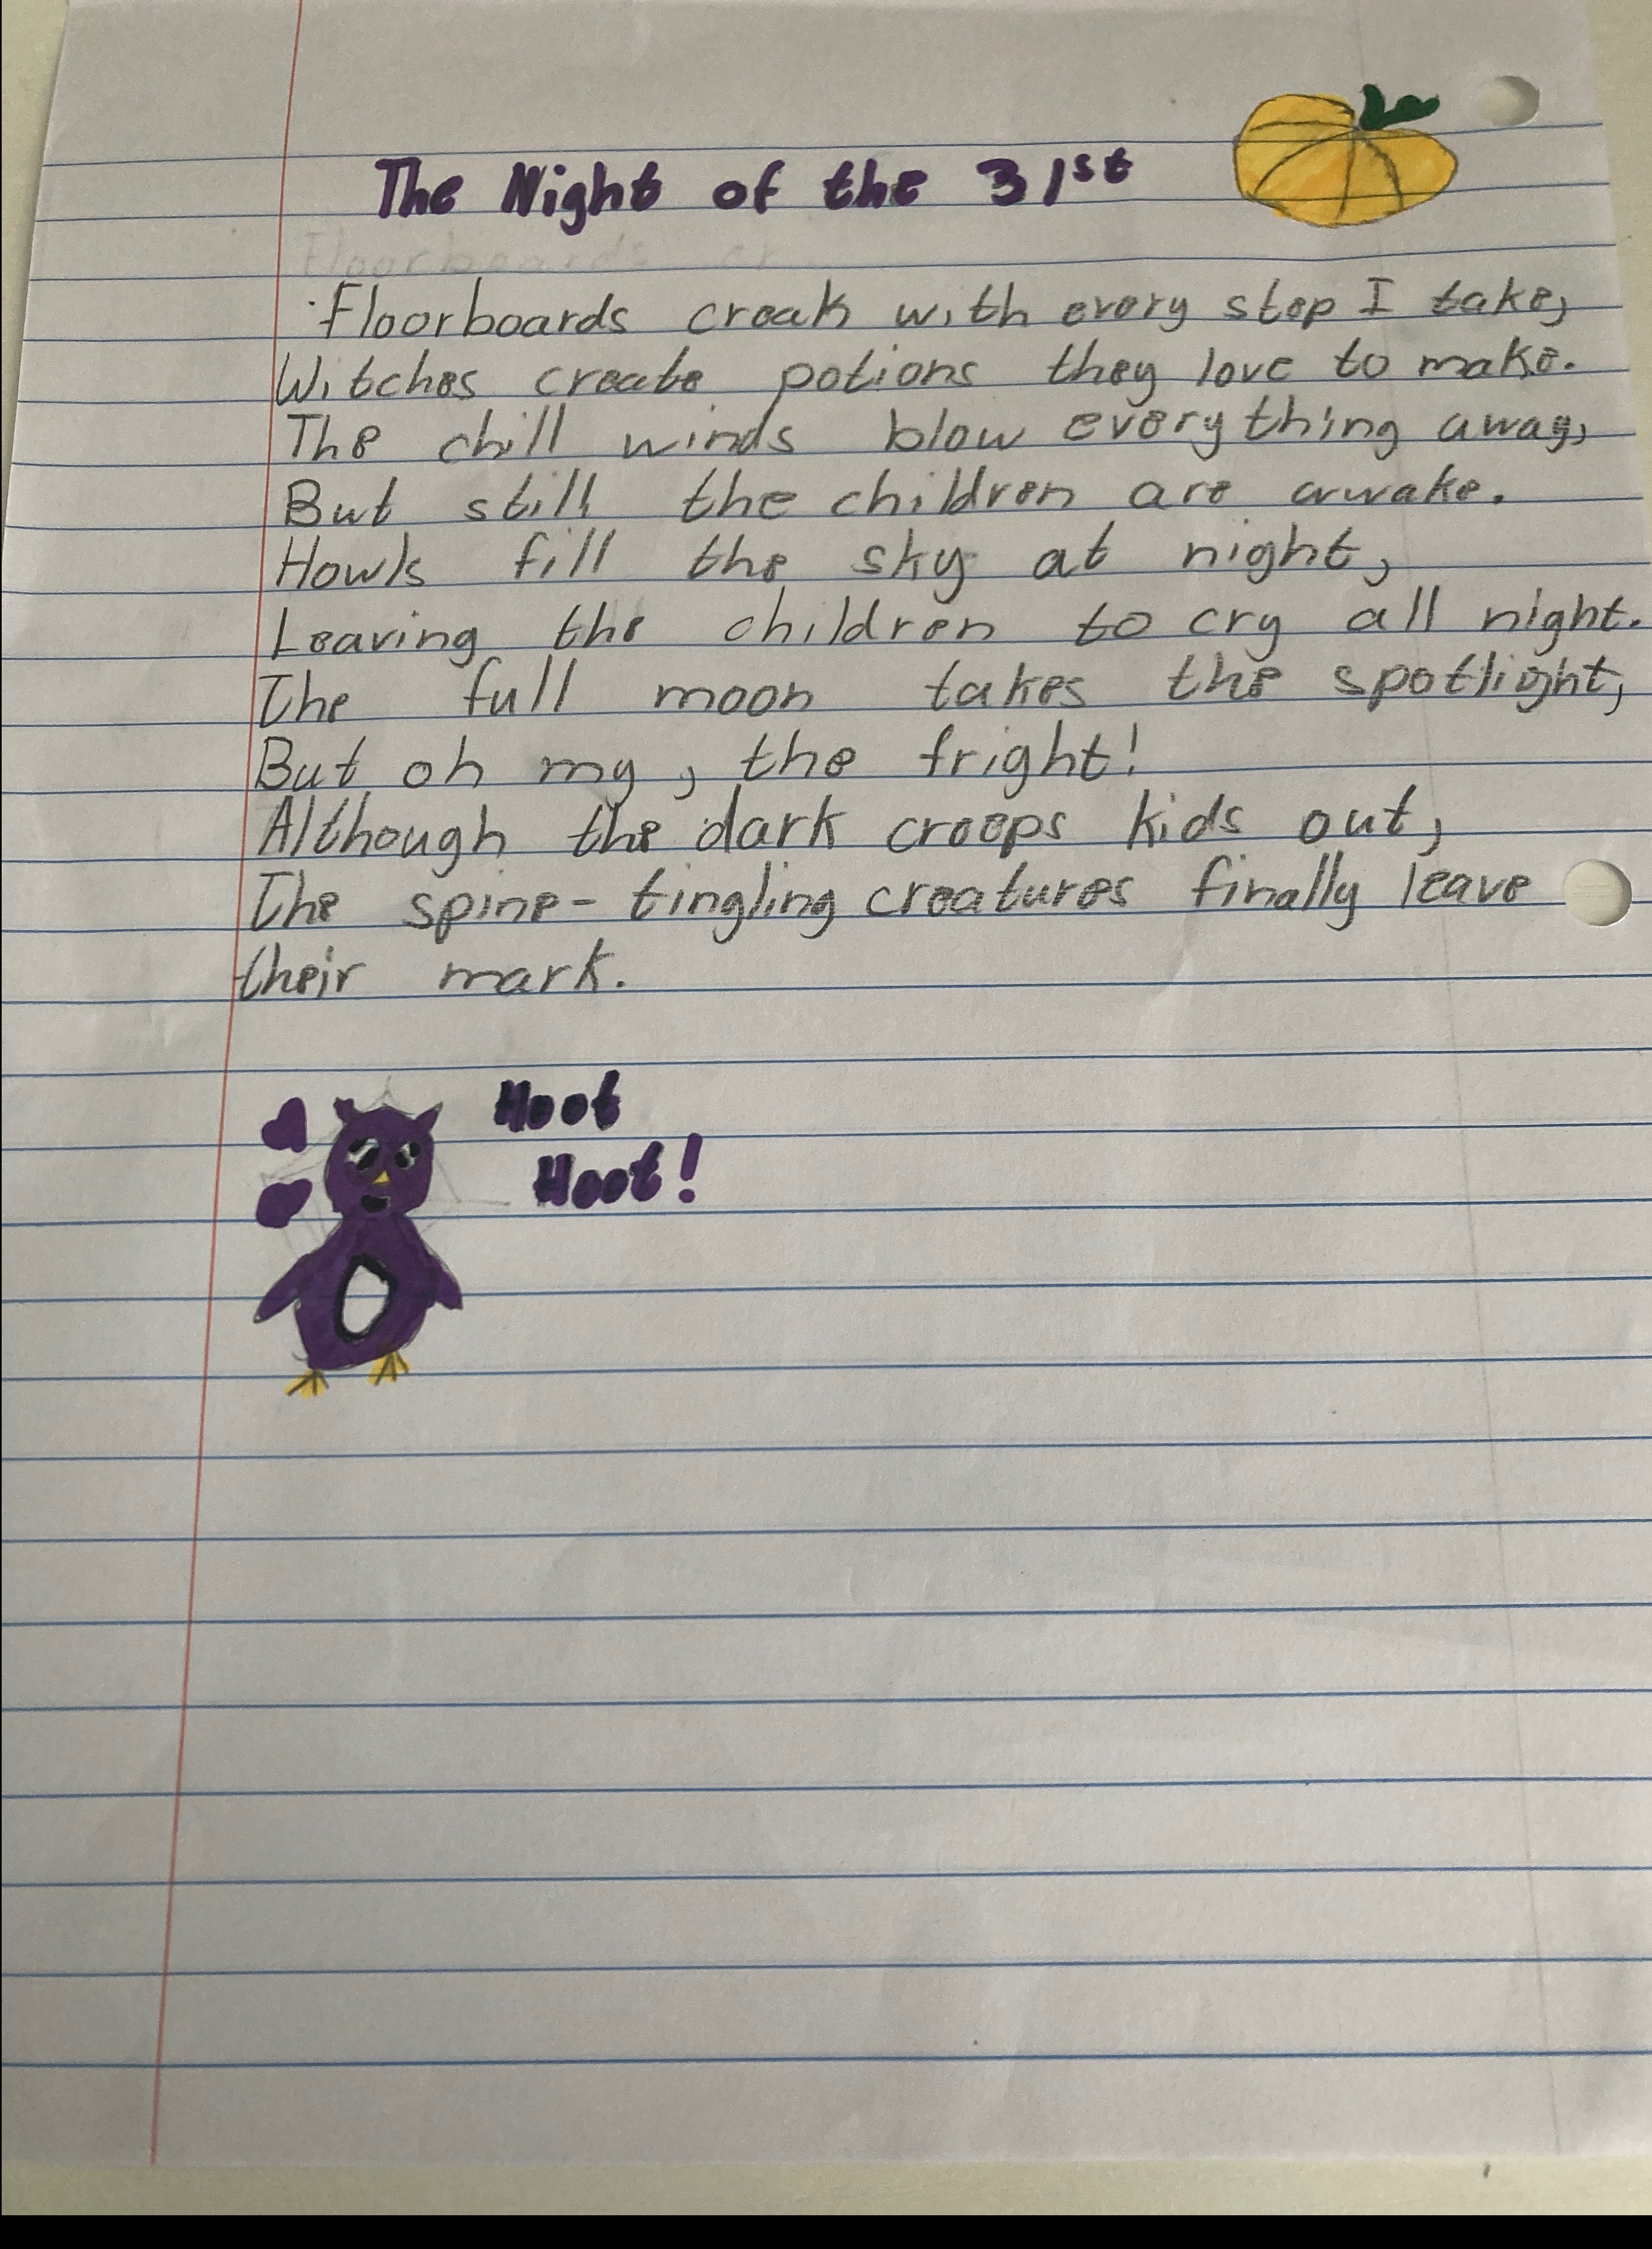 The Night of the 31st
Floorboards cr
Floorboards creak with every step I take,
Witches create potions they love to make.
The chill winds blow everything away,
But still the children are awake.
Howls fill the sky at night,
Leaving the children to cry all night.
The full moon takes the spotlight,
But oh my, the fright!
Although the dark creeps kids out,
The spine-tingling creatures finally leave
their mark.
Hoot
Hoot!